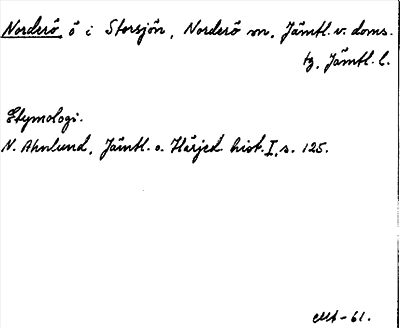 Norderö, ö i Storsjön, Norderö sn, Jämtl. v. doms.
tg, Jämtl. l.
Etymologi.
N. Ahnlund, Jämtl. o. Härjed. hist. I, s. 125.
-61.